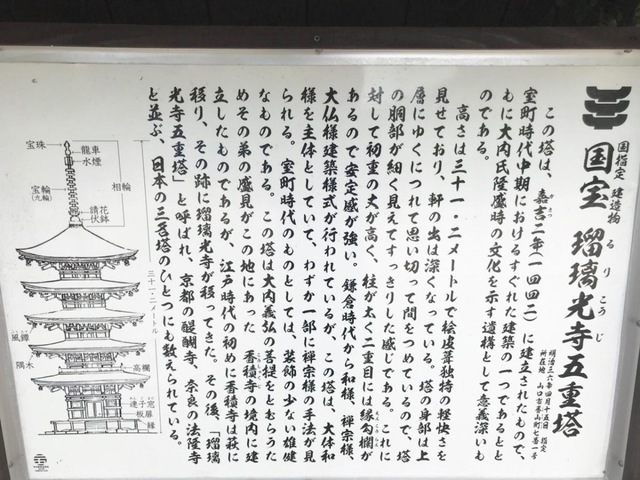 国指定 建造物
国宝 瑠璃光寺五重塔
るり こうじ
明治三六年四月十五日 指定
所在地 山口市香山町七番一号
この塔は、嘉吉二年(一四四二)に建立されたもので、
室町時代中期におけるすぐれた建築の一つであるとと
もに大内氏隆盛時の文化を示す遺構として意義深いも
のである。
高さは三十一・二メートルで桧皮葺独特の軽快さを
見せており、軒の出は深くなっている。塔の身部は上
層にゆくにつれて思い切って間をつめているので、塔
の胴部が細く見えてすっきりした感じである。これに
対して初重の丈が高く、柱が太く二重目には縁勾欄が
あるので安定感が強い。鎌倉時代から和様、禅宗様、
大仏様建築様式が行われているが、この塔は、大体和
様を主体としていて、わずか一部に禅宗様の手法が見
られる。室町時代のものとしては、装飾の少ない雄健
なものである。この塔は大内義弘の菩提をとむらうた
めその弟の盛見がこの地にあった香積寺の境内に建
立したものであるが、江戸時代の初めに香積寺は萩に
移り、その跡に瑠璃光寺が移ってきた。その後、「瑠璃
光寺五重塔」と呼ばれ、京都の醍醐寺、奈良の法隆寺
と並ぶ、日本の三名塔のひとつにも数えられている。
宝珠
竜車
水煙
宝輪
(九輪)
相輪
請花
伏鉢
三十一・二メートル
風鐸
隅木
高欄
連子窓
板扉
縁